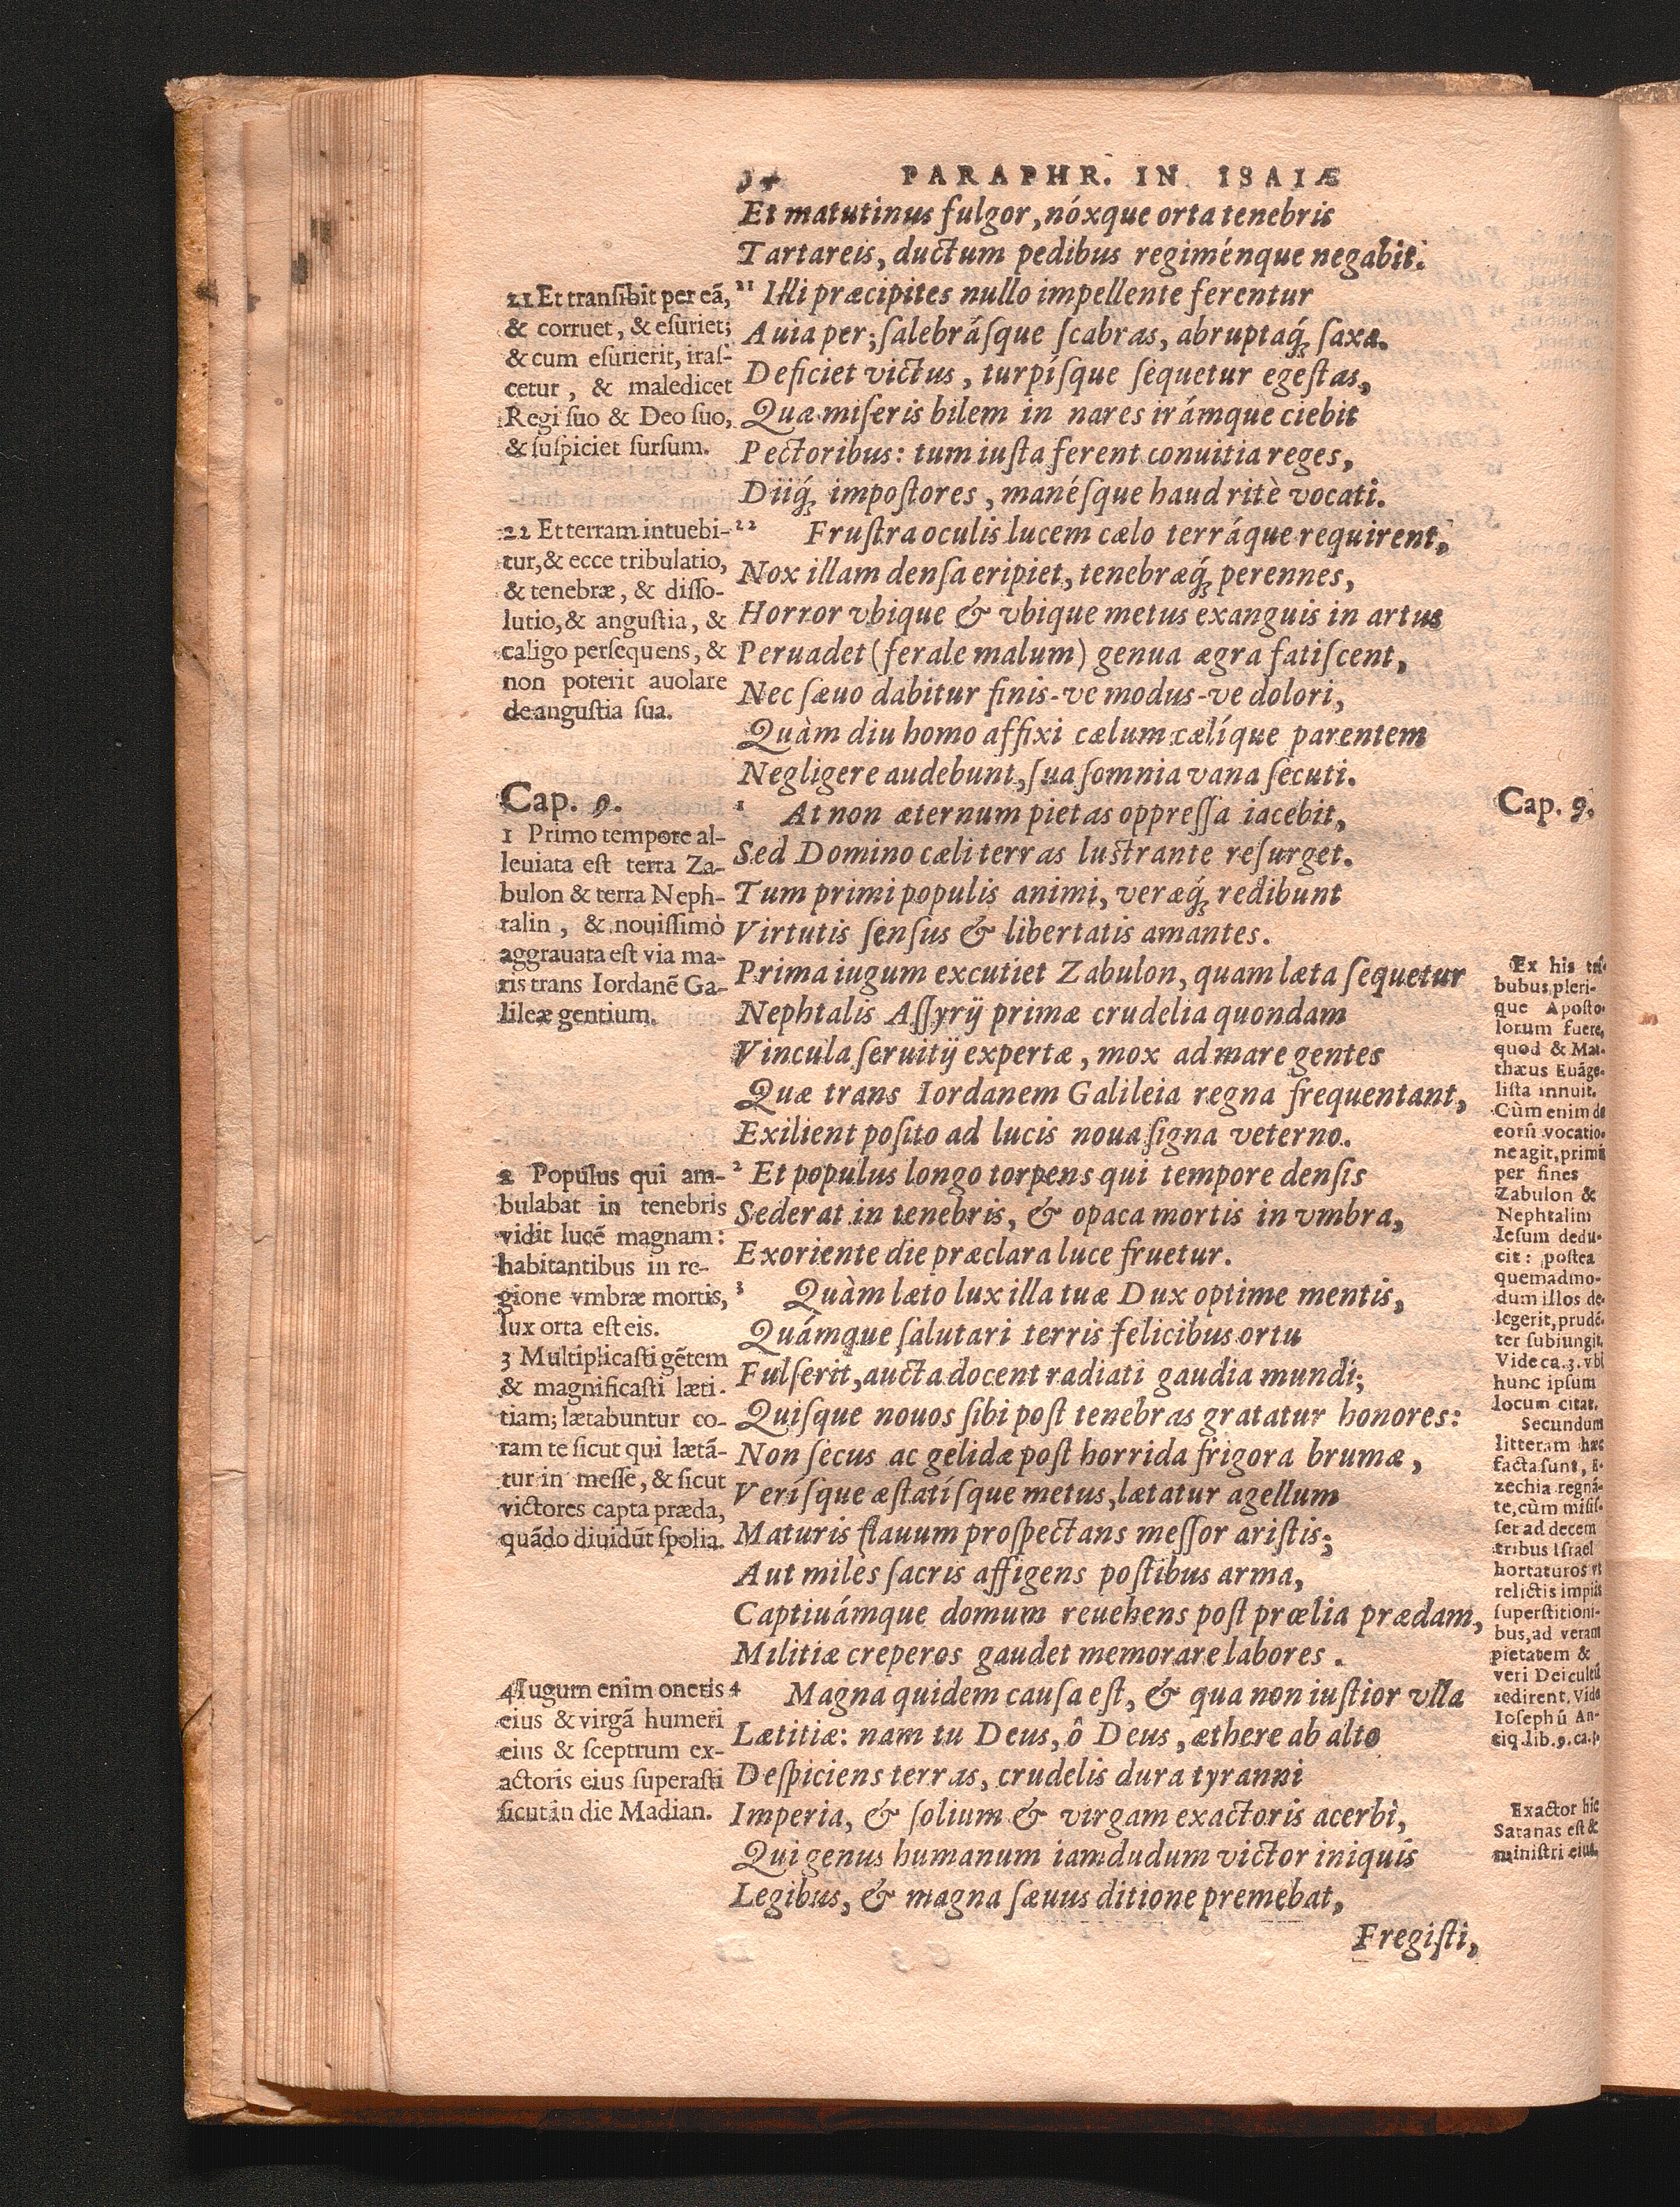 34 PARAPHR. IN ISAIÆ
Et matutinus fulgor, nóxque orta tenebris
Tartareis, ductum pedibus regiménque negabit.
21 Illi præcipites nullo impellente ferentur
Auia per; ſalebráſque ſcabras, abruptaq́ꝫ ſaxa.
Deficiet victus, turpíſque ſequetur egeſtas,
Quæ miſeris bilem in nares irámque ciebit
Pectoribus: tum iuſta ferent conuitia reges,
Diiq́ꝫ impoſtores, manéſque haud ritè vocati.
22 Fruſtra oculis lucem cælo terráque requirent,
Nox illam denſa eripiet, tenebræq́ꝫ perennes,
Horror vbique & vbique metus exanguis in artus
Peruadet (ferale malum) genua ægra fatiſcent,
Nec ſæuo dabitur finis-ve modus-ve dolori,
Quàm diu homo affixi cælum cælíque parentem
Negligere audebunt, ſua ſomnia vana ſecuti.
1 At non æternum pietas oppreſſa iacebit,
Sed Domino cæli terras luſtrante reſurget.
Tum primi populis animi, veræq́ꝫ redibunt
Virtutis ſenſus & libertatis amantes.
Prima iugum excutiet Zabulon, quam læta ſequetur
Nephtalis Aſſyrij primæ crudelia quondam
Vincula ſeruitij expertæ, mox ad mare gentes
Quæ trans Iordanem Galileia regna frequentant,
Exilient poſito ad lucis noua ſigna veterno.
2 Et populus longo torpens qui tempore denſis
Sederat in tenebris, & opaca mortis in vmbra,
Exoriente die præclara luce fruetur.
3 Quàm læto lux illa tuæ Dux optime mentis,
Quámque ſalutari terris felicibus ortu
Fulſerit, aucta docent radiati gaudia mundi;
Quiſque nouos ſibi poſt tenebras gratatur honores:
Non ſecus ac gelidæ poſt horrida frigora brumæ,
Veríſque æſtatíſque metus, lætatur agellum
Maturis flauum proſpectans meſſor ariſtis;
Aut miles ſacris affigens poſtibus arma,
Captiuámque domum reuehens poſt prœlia prædam,
Militiæ creperos gaudet memorare labores.
4 Magna quidem cauſa eſt, & qua non iuſtior vlla
Lætitiæ: nam tu Deus, ô Deus, æthere ab alto
Deſpiciens terras, crudelis dura tyranni
Imperia, & ſolium & virgam exactoris acerbi,
Qui genus humanum iamdudum victor iniquis
Legibus, & magna ſæuus ditione premebat,
Fregiſti,
21 Et tranſibit per eã,
& corruet, & eſuriet;
& cum eſurierit, iraſ-
cetur, & maledicet
Regi ſuo & Deo ſuo,
& ſuſpiciet ſurſum.
22 Et terram intuebi-
tur, & ecce tribulatio,
& tenebræ, & diſſo-
lutio, & anguſtia, &
caligo perſequens, &
non poterit auolare
de anguſtia ſua.
Cap. 9.
1 Primo tempore al-
leuiata eſt terra Za-
bulon & terra Neph-
talin, & nouiſſimò
aggrauata eſt via ma-
ris trans Iordanẽ Ga-
lileæ gentium.
2 Populus qui am-
bulabat in tenebris
vidit lucẽ magnam:
habitantibus in re-
gione vmbræ mortis,
lux orta eſt eis.
3 Multiplicaſti gẽtem
& magnificaſti læti-
tiam; lætabuntur co-
ram te ſicut qui lætã-
tur in meſſe, & ſicut
victores capta præda,
quãdo diuidũt ſpolia.
4 Iugum enim oneris
eius & virgã humeri
eius & ſceptrum ex-
actoris eius ſuperaſti
ſicut in die Madian.
Cap. 9.
Ex his tri-
bubus pleri-
que Apoſto-
lorum fuere,
quod & Mat-
thæus Euãge-
liſta innuit.
Cùm enim de
eorũ vocatio-
ne agit, primũ
per fines
Zabulon &
Nephtalim
Ieſum dedu-
cit: poſtea
quemadmo-
dum illos de-
legerit, prudẽ-
ter ſubiungit.
Vide ca. 3. vbi
hunc ipſum
locum citat.
Secundum
litteram hæc
facta ſunt, E-
zechia regnã-
te, cùm miſiſ-
ſet ad decem
tribus Iſrael
hortaturos vt
relictis impiis
ſuperſtitioni-
bus, ad veram
pietatem &
veri Dei cultũ
redirent. Vide
Ioſephũ An-
tiq. lib. 9. ca.
Exactor hic
Satanas eſt &
miniſtri eius.